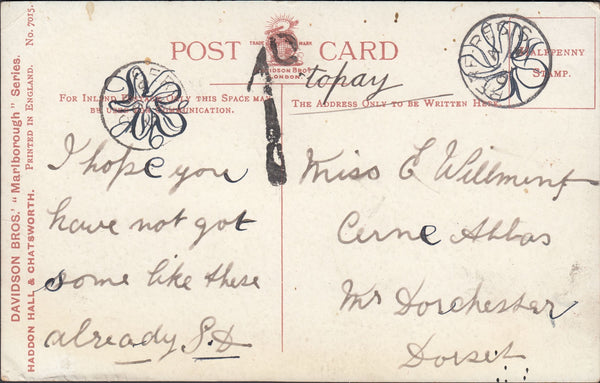 DAVIDSON BROS.' "Marlborough" Series.
Printed in England. No. 7015.
HADDON HALL & CHATSWORTH.
POST CARD
TRADE MARK
DAVIDSON BROS
LONDON
1D
to pay
HALFPENNY
STAMP.
For Inland Postage only this Space may
be used for Communication.
The Address Only to be Written Here.
I hope you
have not got
some like these
already S.D
Miss E Willment
Cerne Abbas
Nr Dorchester
Dorset